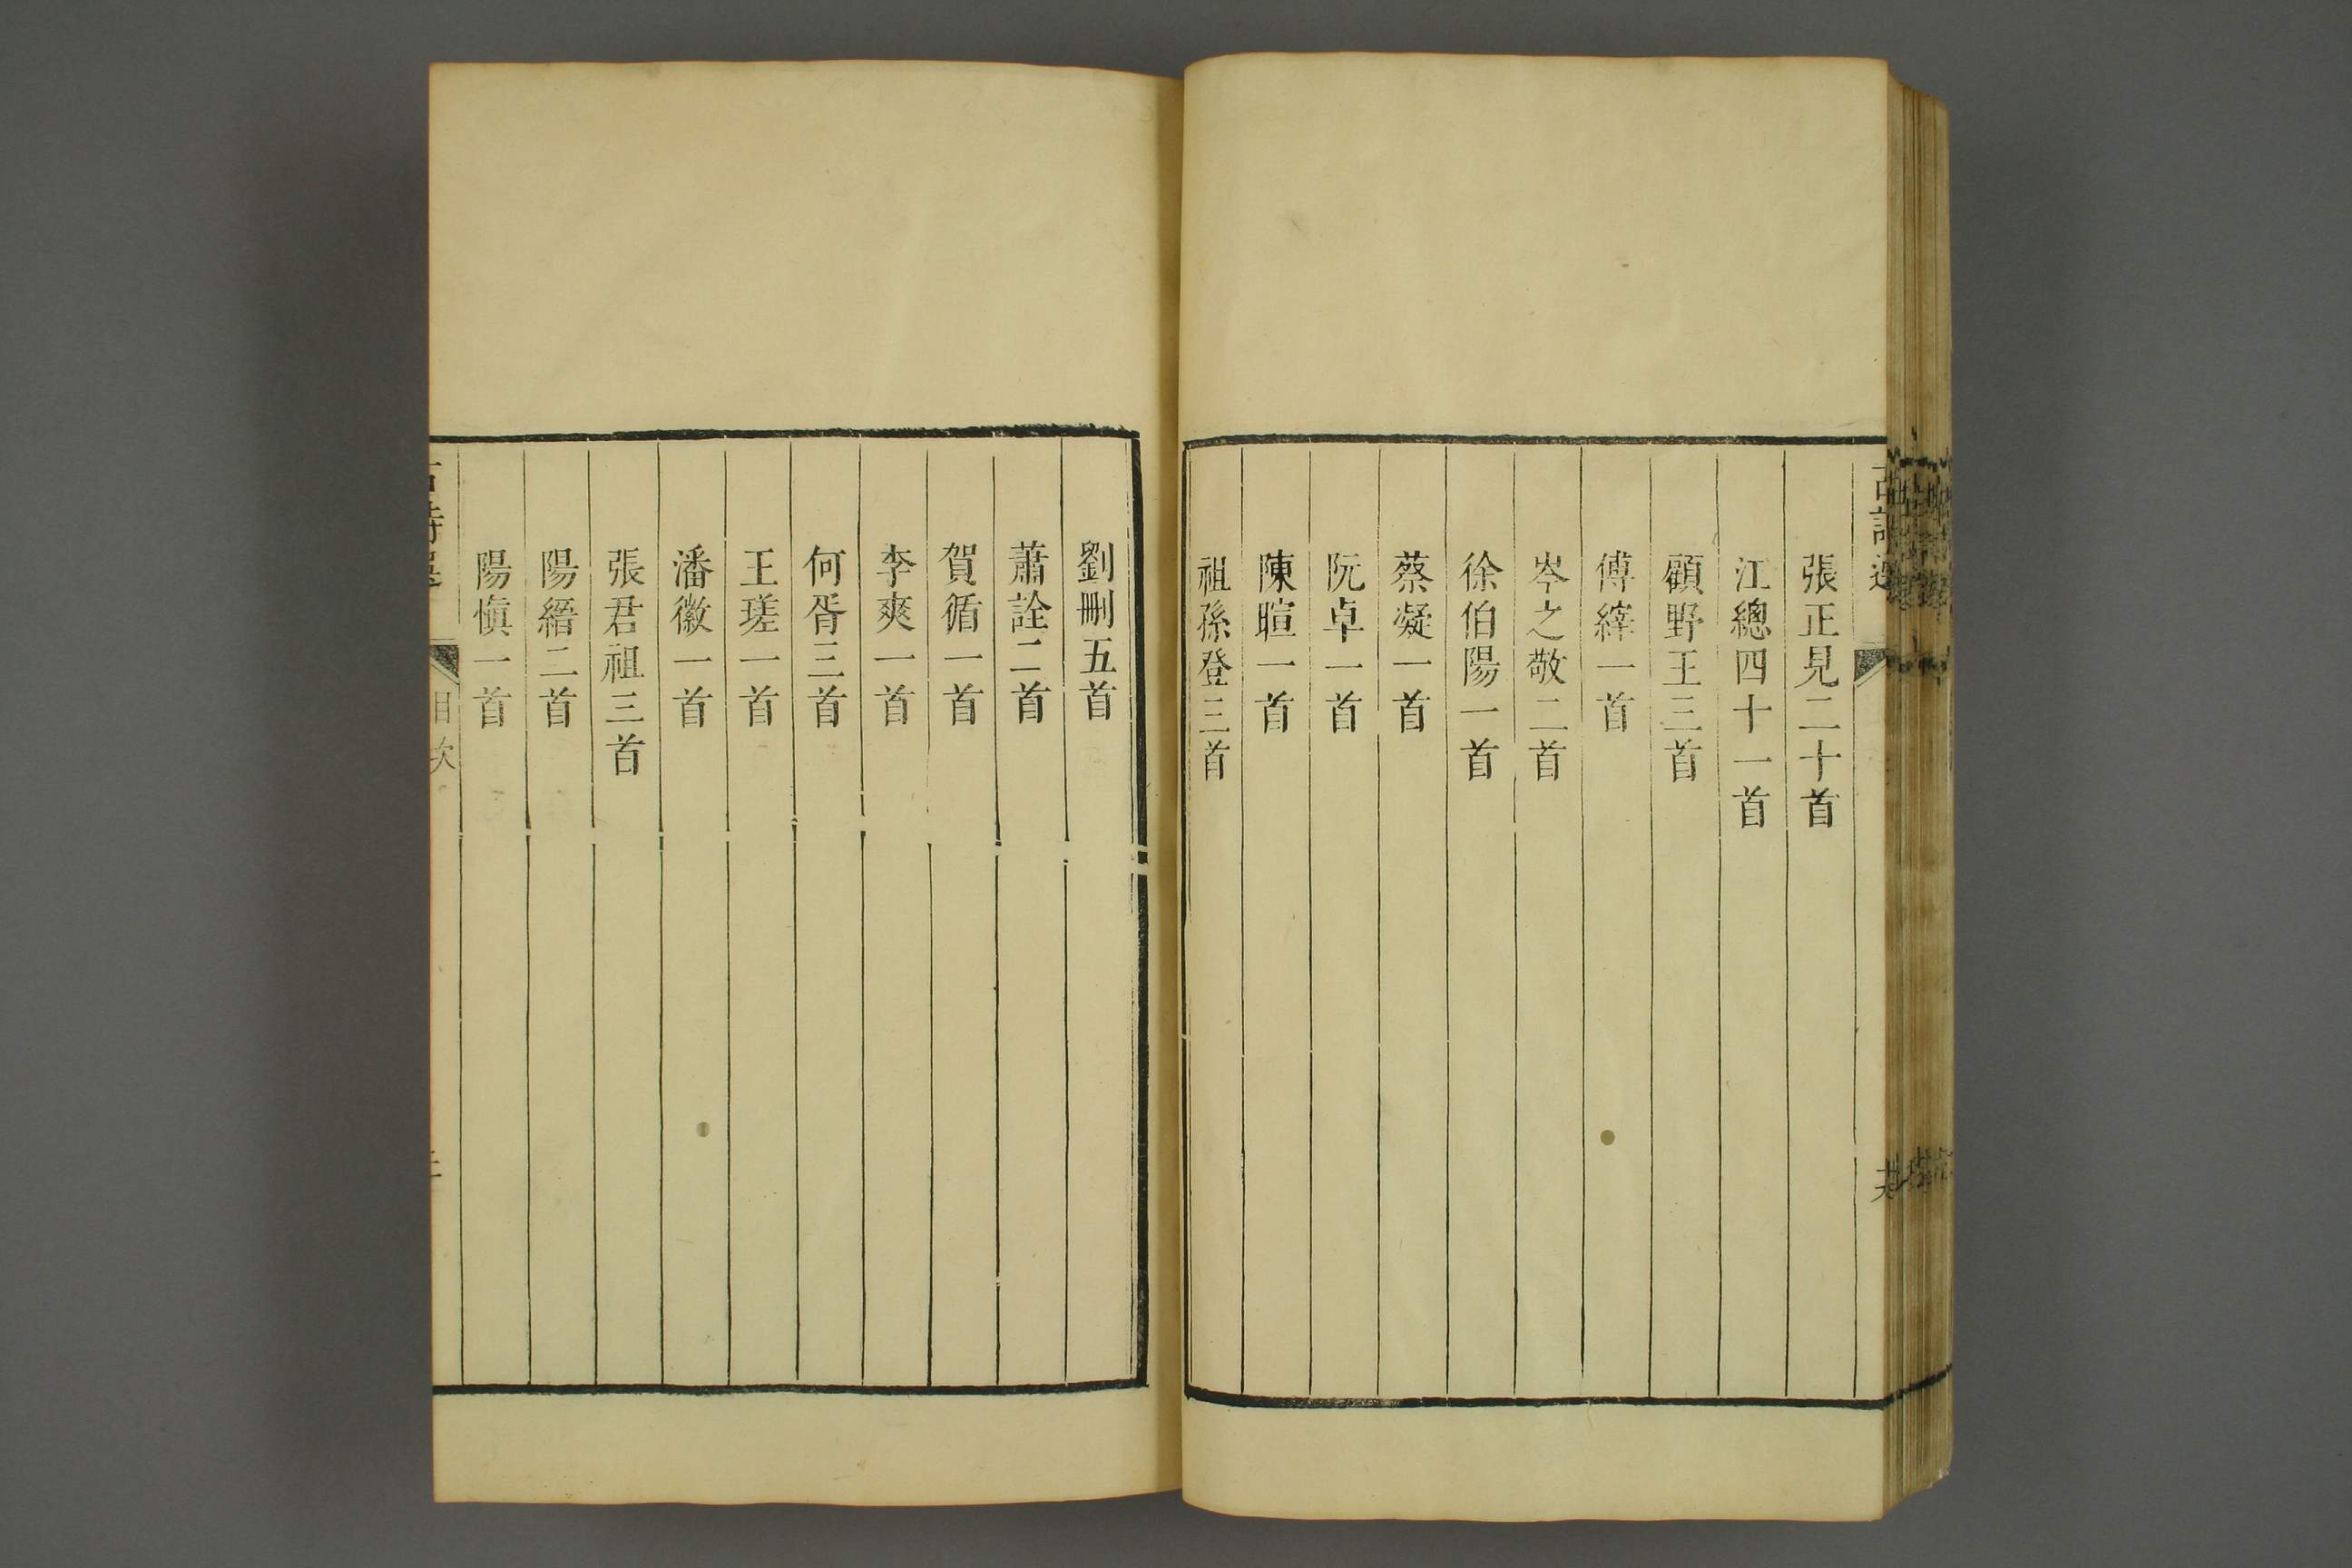 張正見二十首
江總四十一首
顧野王三首
傅縡一首
岑之敬二首
徐伯陽一首
蔡凝一首
阮卓一首
陳暄一首
祖孫登三首
劉刪五首
蕭詮二首
賀循一首
李爽一首
何胥三首
王瑳一首
潘徽一首
張君祖三首
陽縉二首
陽慎一首
目次